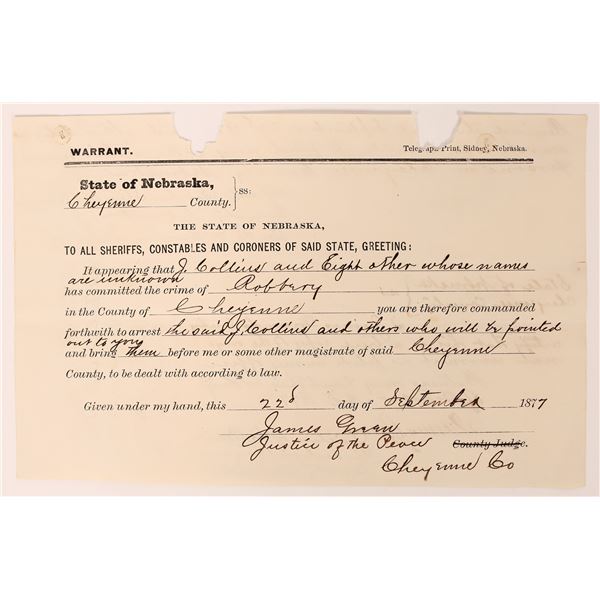 WARRANT. Telegraph Print, Sidney, Nebraska.
State of Nebraska, } ss:
Cheyenne County.
THE STATE OF NEBRASKA,
TO ALL SHERIFFS, CONSTABLES AND CORONERS OF SAID STATE, GREETING:
It appearing that J. Collins and Eight other whose names
are unknown
has committed the crime of Robbery
in the County of Cheyenne you are therefore commanded
forthwith to arrest the said J. Collins and others who will be pointed
out to you
and bring them before me or some other magistrate of said Cheyenne
County, to be dealt with according to law.
Given under my hand, this 22d day of September 1877
James Green
Justice of the Peace County Judge.
Cheyenne Co